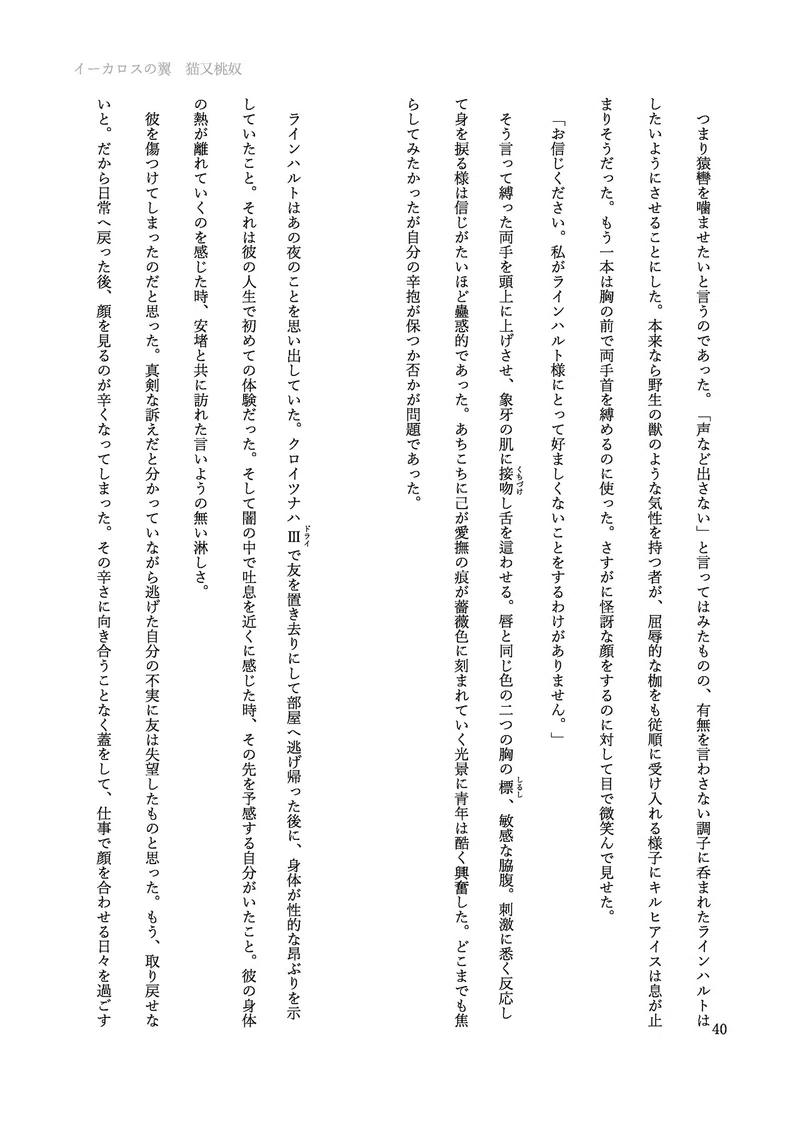 イーカロスの翼　猫又桃奴
つまり猿轡を噛ませたいと言うのであった。「声など出さない」と言ってはみたものの、有無を言わさない調子に呑まれたラインハルトは
したいようにさせることにした。本来なら野生の獣のような気性を持つ者が、屈辱的な枷をも従順に受け入れる様子にキルヒアイスは息が止
まりそうだった。もう一本は胸の前で両手首を縛めるのに使った。さすがに怪訝な顔をするのに対して目で微笑んで見せた。
「お信じください。私がラインハルト様にとって好ましくないことをするわけがありません。」
そう言って縛った両手を頭上に上げさせ、象牙の肌に接吻くちづけし舌を這わせる。唇と同じ色の二つの胸の標しるし、敏感な脇腹。刺激に悉く反応し
て身を捩る様は信じがたいほど蠱惑的であった。あちこちに己が愛撫の痕が薔薇色に刻まれていく光景に青年は酷く興奮した。どこまでも焦
らしてみたかったが自分の辛抱が保つか否かが問題であった。
ラインハルトはあの夜のことを思い出していた。クロイツナハⅢドライで友を置き去りにして部屋へ逃げ帰った後に、身体が性的な昂ぶりを示
していたこと。それは彼の人生で初めての体験だった。そして闇の中で吐息を近くに感じた時、その先を予感する自分がいたこと。彼の身体
の熱が離れていくのを感じた時、安堵と共に訪れた言いようの無い淋しさ。
彼を傷つけてしまったのだと思った。真剣な訴えだと分かっていながら逃げた自分の不実に友は失望したものと思った。もう、取り戻せな
いと。だから日常へ戻った後、顔を見るのが辛くなってしまった。その辛さに向き合うことなく蓋をして、仕事で顔を合わせる日々を過ごす
40